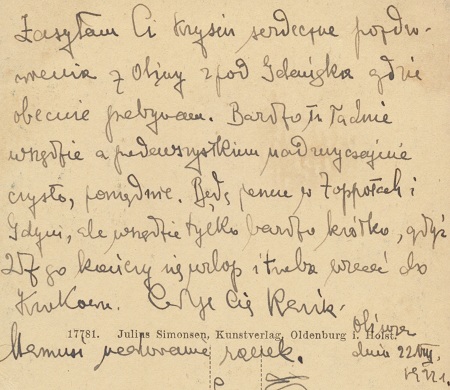 Zasyłam Ci Krysiu serdeczne pozdro-
wienia z Oliwy z pod Gdańska gdzie
obecnie przebywam. Bardzo tu ładnie
wszędzie a przedewszystkiem nadzwyczajnie
czysto, porządnie. Będę pewnie w Zoppotach i
Gdyni, ale wszędzie tylko bardzo krótko, gdyż
27go kończy się urlop i trzeba wracać do
Krakowa. Całuje Cię Renik.
17781. Julius Simonsen, Kunstverlag, Oldenburg i. Holst.
Mamusi ucałowanie rączek.
dnia 22/VIII